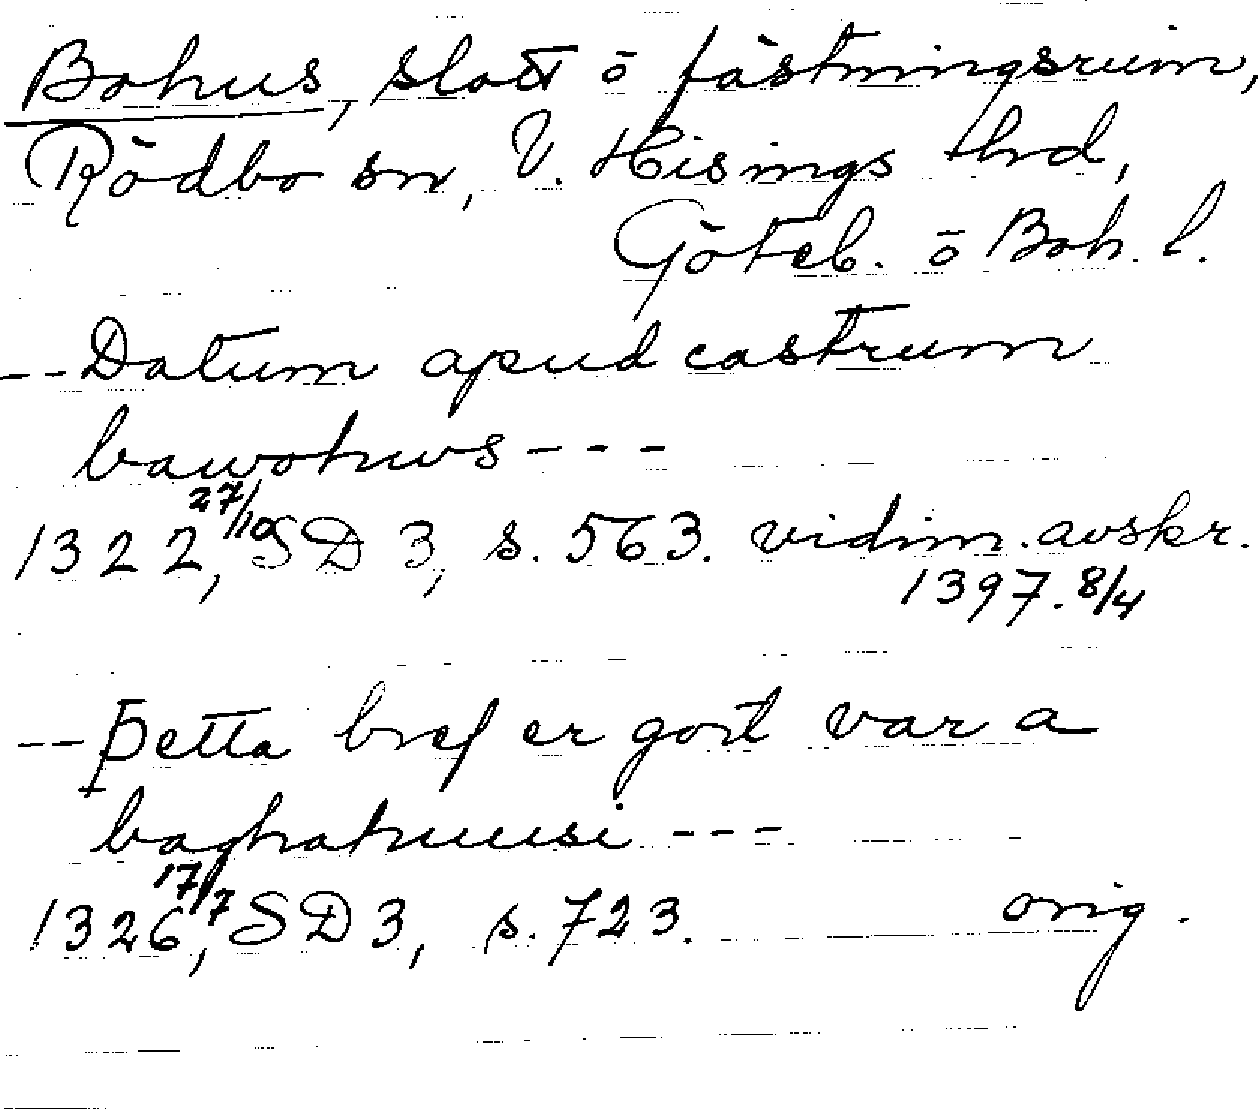 Bohus, slott ō fästningsruin,
Rödbo sn, V. Hisings hrd,
Göteb. ō Boh. l.
-- Datum apud castrum
bawohws ---
1322, 27/10 SD 3, s. 563. vidim. avskr.
1397. 8/4
-- Þetta bref er gort var a
baghahuusi ---
1326, 17/7 SD 3, s. 723. orig.